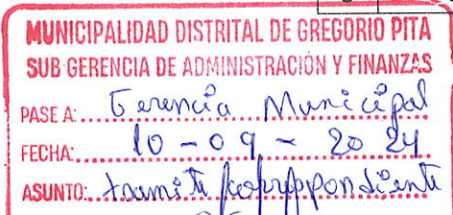 MUNICIPALIDAD DISTRITAL DE GREGORIO PITA
SUB GERENCIA DE ADMINISTRACIÓN Y FINANZAS
PASE A: Gerencia Municipal
FECHA: 10 - 09 - 2024
ASUNTO: tramite